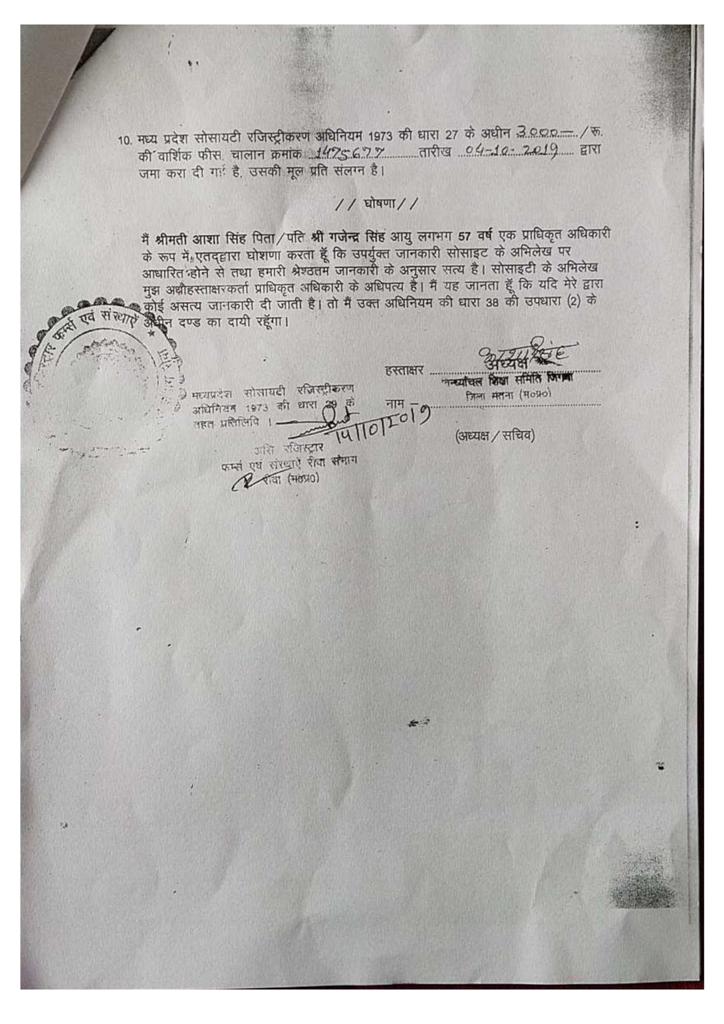 10. मध्य प्रदेश सोसायटी रजिस्ट्रीकरण अधिनियम 1973 की धारा 27 के अधीन 3000—/रू.
की वार्षिक फीस, चालान क्रमांक 1475677 तारीख 04-10-2019 द्वारा
जमा करा दी गई है, उसकी मूल प्रति संलग्न है।
// घोषणा//
मैं श्रीमती आशा सिंह पिता/पति श्री गजेन्द्र सिंह आयु लगभग 57 वर्ष एक प्राधिकृत अधिकारी
के रूप में एतद्द्वारा घोशणा करता हूँ कि उपर्युक्त जानकारी सोसाइट के अभिलेख पर
आधारित होने से तथा हमारी श्रेश्ठतम जानकारी के अनुसार सत्य है। सोसाइटी के अभिलेख
मुझ अधोहस्ताक्षरकर्ता प्राधिकृत अधिकारी के अधिपत्य है। मैं यह जानता हूँ कि यदि मेरे द्वारा
कोई असत्य जानकारी दी जाती है। तो मैं उक्त अधिनियम की धारा 38 की उपधारा (2) के
अधीन दण्ड का दायी रहूँगा।
फर्म्स एवं संस्थाऐं
हस्ताक्षर
अध्यक्ष
शिक्षा समिति
जिला सतना (म०प्र०)
नाम
(अध्यक्ष/सचिव)
मध्यप्रदेश सोसायटी रजिस्ट्रीकरण
अधिनियम 1973 की धारा 29 के
तहत प्रतिलिपि।
14/10/2019
असि रजिस्ट्रार
फर्म्स एवं संस्थाऐं रीवा संभाग
रीवा (म०प्र०)